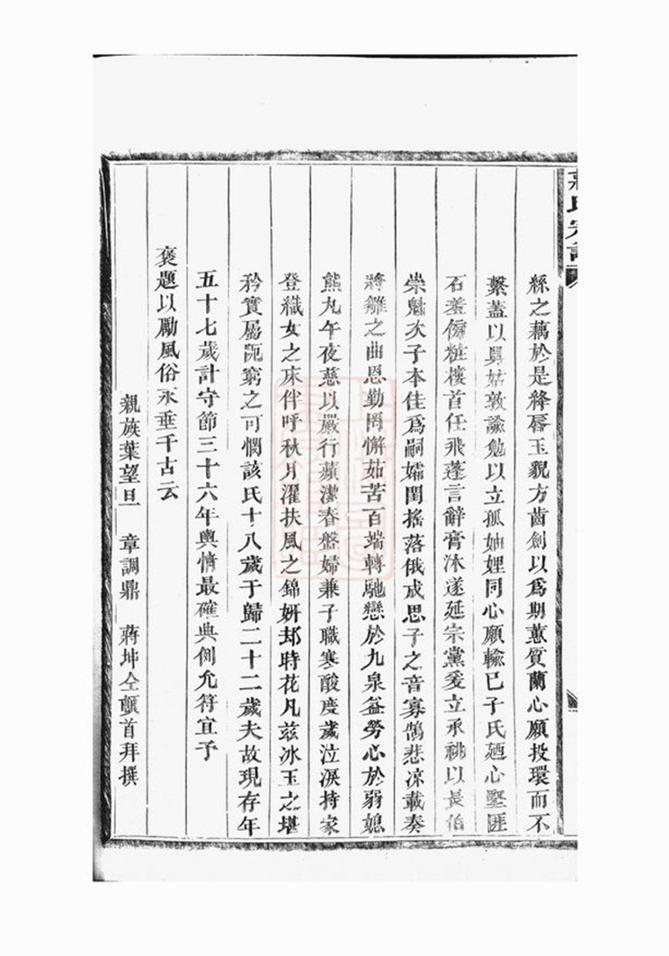 蔣氏宗譜
絲之藕於是絳唇玉貌方齒劍以為期蕙質蘭心願投環而不
繫蓋以舅姑敦諭勉以立孤妯娌同心願輸已子氏廼心堅匪
石羞偹粧樓首任飛蓬言辭膏沐遂延宗黨爰立承祧以長伯
崇魁次子本佳為嗣孀閨搖落俄成思子之音寡鵠悲凉載奏
將雛之曲恩勤罔懈茹苦百端轉馳戀於九泉益勞心於弱媳
熊丸午夜慈以嚴行蘋潔春盤婦兼子職寒酸度歲泣淚持家
登織女之床伴呼秋月濯扶風之錦妍却時花凡兹冰玉之堪
矜實屬阨窮之可憫該氏十八歲于歸二十二歲夫故現存年
五十七歲計守節三十六年輿情最確典例允符宜予
褒題以勵風俗永垂千古云
親族葉望旦 章調鼎 蔣坤仝頓首拜撰